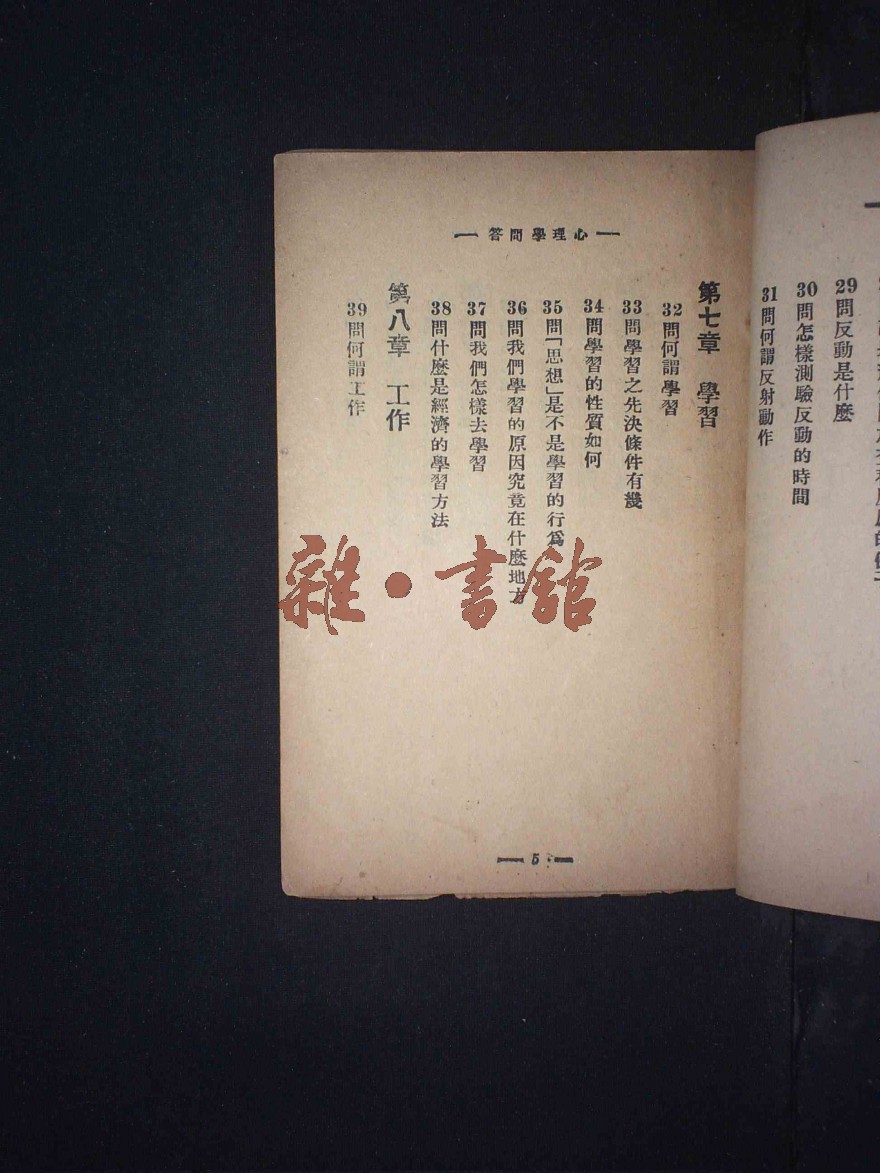 29問反動是什麼
30問怎樣測驗反動的時間
31問何謂反射動作
心理學問答
第七章　學習
32問何謂學習
33問學習之先決條件有幾
34問學習的性質如何
35問「思想」是不是學習的行爲
36問我們學習的原因究竟在什麼地方
37問我們怎樣去學習
38問什麼是經濟的學習方法
第八章　工作
39問何謂工作
5
雜·書館